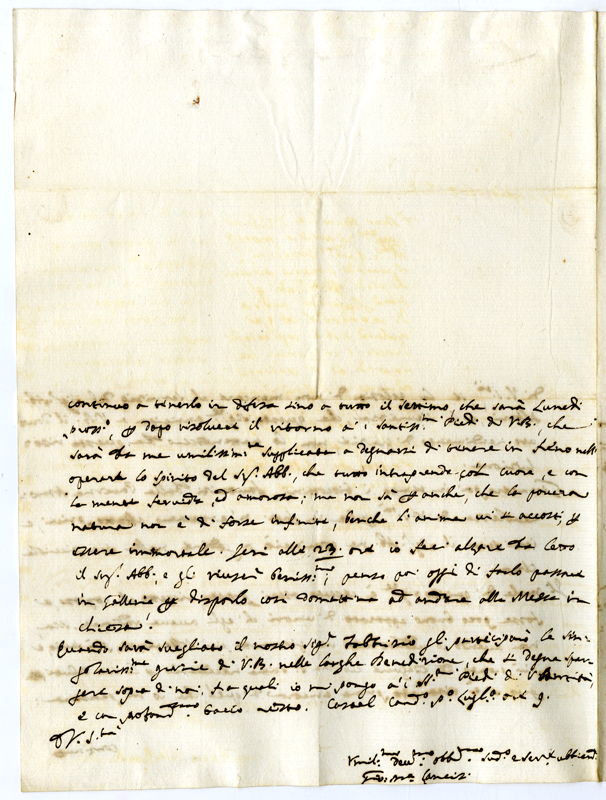 continuo a tenerlo in difesa sino a tutto il settimo, che sarà Lunedi
pross.º, e dopo risolverà il ritorno a' i santiss.mi Piedi di V.B., che
sarà da me umilissim.te supplicata a degnarsi di tenere in freno nell'
operare lo spirito del Sig.r Abb., che tutto intraprende con cuore, e con
la mente fervida, ed amorosa; ma non sà anche, che la povera
natura non è di forze infinite, benche l'anima vi si accosti,
essere immortale. Jeri alle 23. ore io feci alzare da letto
il Sig.r Abb., e gli riuscì beniss.mo, penso poi oggi di farlo passare
in Galleria disporlo così domattina ad andare alla Messa in
chiesa.
Quando sarà svegliato il nostro Sig.r Fabbrizio gli participerò le sin-
golariss.me grazie di V.B. nelle larghe Benedizione, che si degna spar-
gere sopra di noi, da quali io mi pongo a' i SS.mi Piedi di
e con profond.mo bacio Castel Cand.º p.º Lugl.º ore 9.
D V. S.tà
Umil.mo dev.mo obb.mo sud.º e ser.re
Gio: Ma: Lancisi